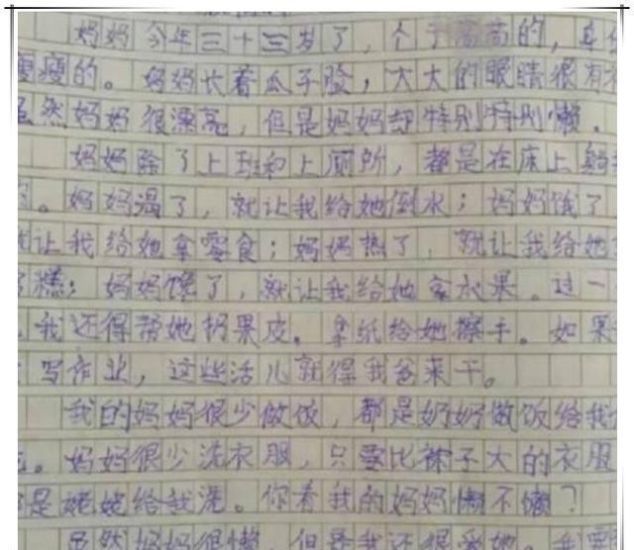 妈妈今年三十三岁了,个子高高的,
瘦瘦的。妈妈长着瓜子脸,大大的眼睛很有
虽然妈妈很漂亮,但是妈妈却特别特别懒。
妈妈除了上班和上厕所,都是在床上躺
。妈妈渴了,就让我给她倒水;妈妈饿了
让我给她拿零食;妈妈热了,就让我给她
糕;妈妈馋了,就让我给她拿水果。过一
,我还得帮她扔果皮。拿纸给她擦手。如果
写作业,这些活儿就得我爸来干。
我的妈妈很少做饭,都是奶奶做饭给我
。妈妈很少洗衣服,只要比袜子大的衣服
是姥姥给我洗。你看我的妈妈懒不懒?
虽然妈妈很懒,但是我还很爱她。我